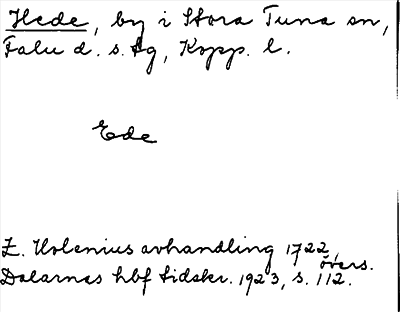 Hede, by i Stora Tuna sn,
Falu d. s. tg, Kopp. l.
Ede
Z. Holenius avhandling 1722, övers.
Dalarnas hbf tidskr. 1923, s. 112.